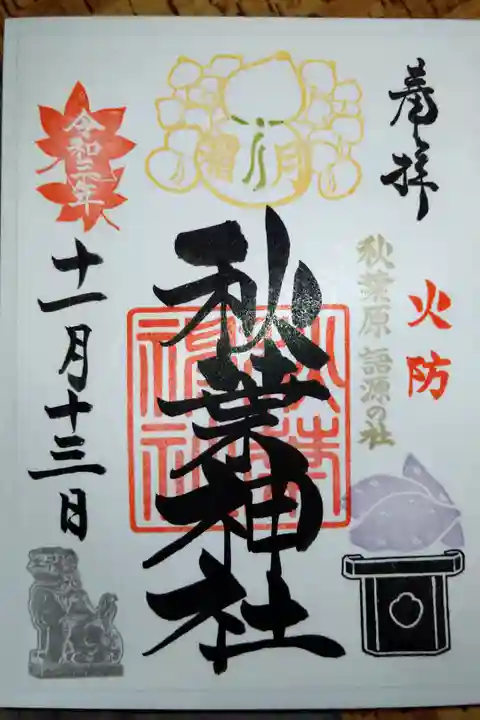 奉拝
火防
秋葉原語源の社
霜月
秋葉神社
令和三年
十一月十三日